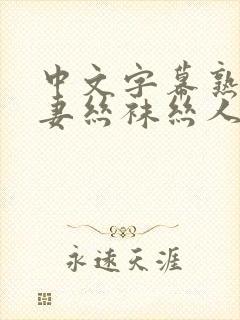 中文字幕熟
妻丝袜丝人
永远天涯